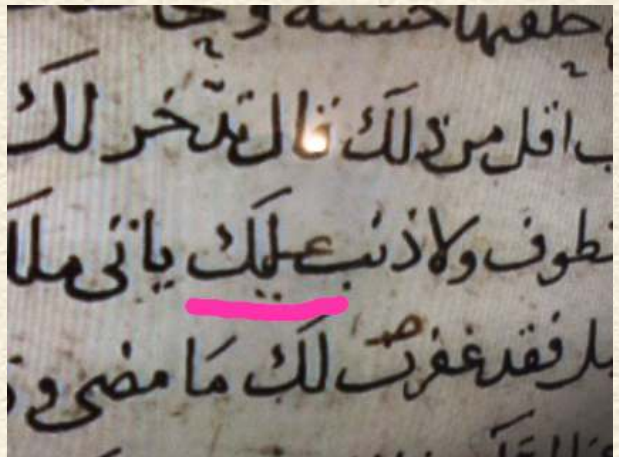 خلفها حسنة و
اقل من ذلك قال تدخر لك
تطوف ولا ذنب عليك ياتى ملك
فقد غفرت لك ما مضى و